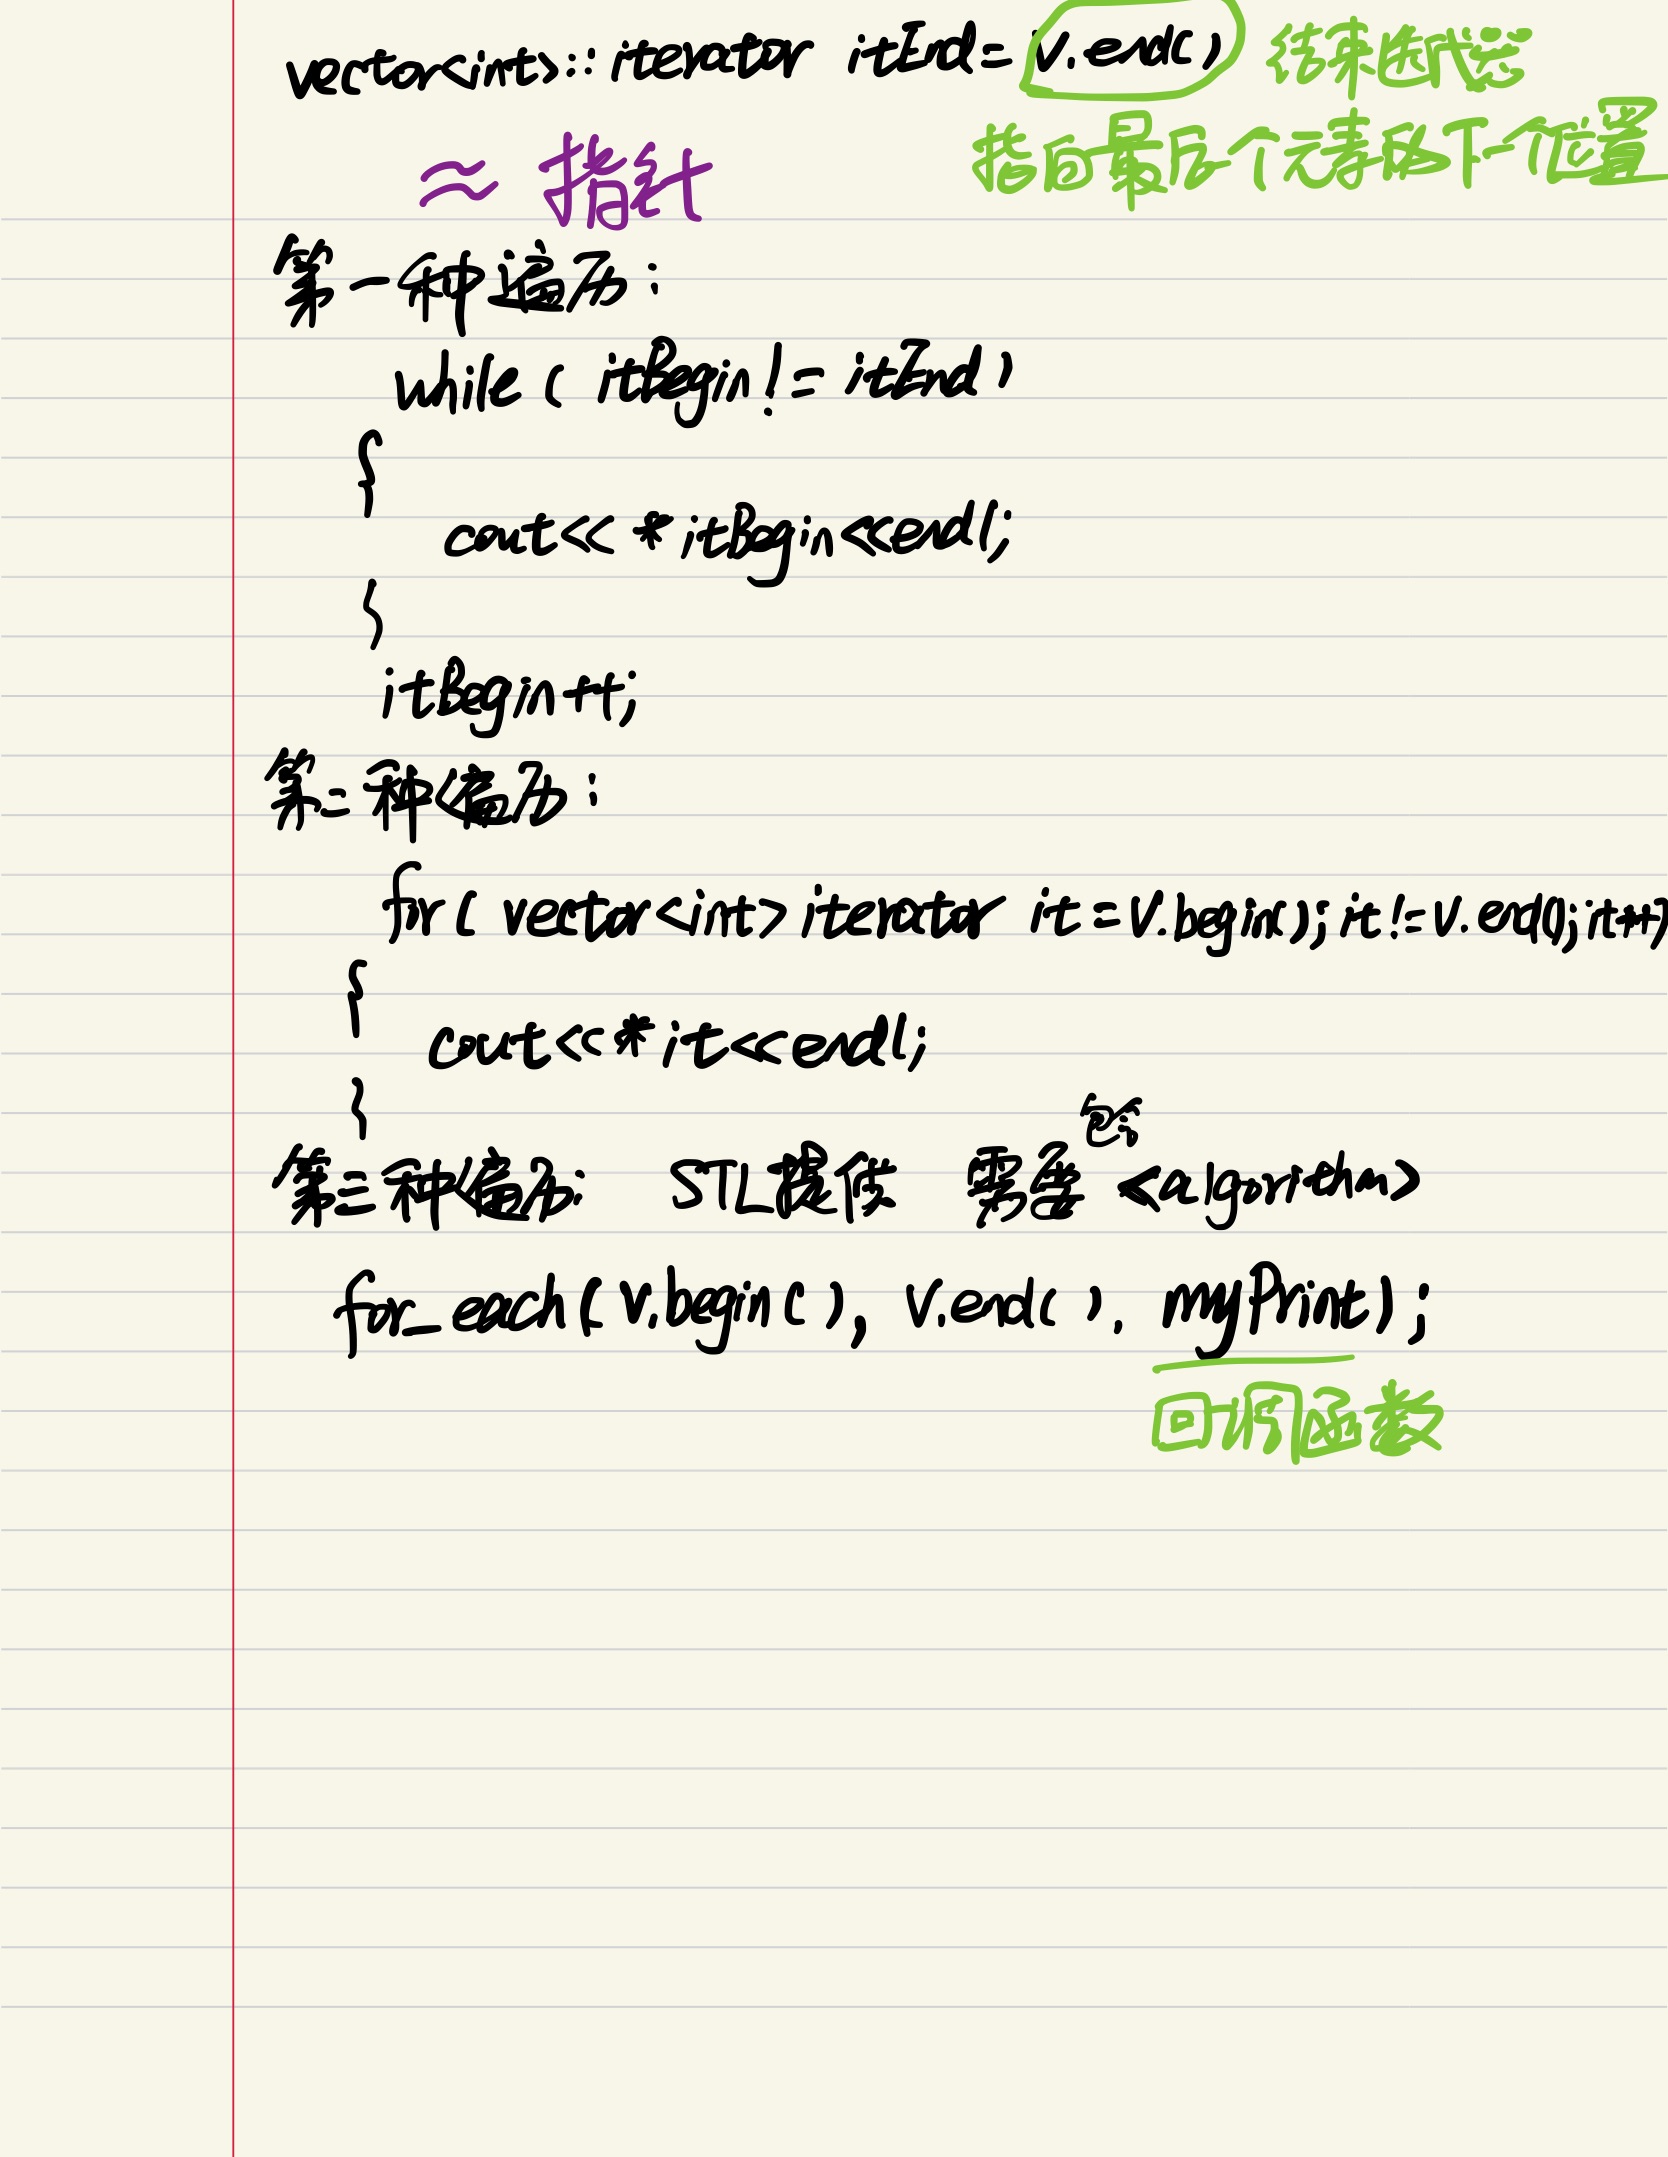 vector<int>::iterator itEnd=v.end() 结束迭代器
指向最后个元素的下一个位置
≈ 指针
第一种遍历:
while ( itBegin != itEnd )
{
cout<< *itBegin<<endl;
}
itBegin++;
第二种遍历:
for( vector<int>iterator it=v.begin();it!=v.end();it++)
{
cout<<*it<<endl;
}
包含
第三种遍历: STL提供 需要 <algorithm>
for_each(v.begin(), v.end(), myPrint);
回调函数